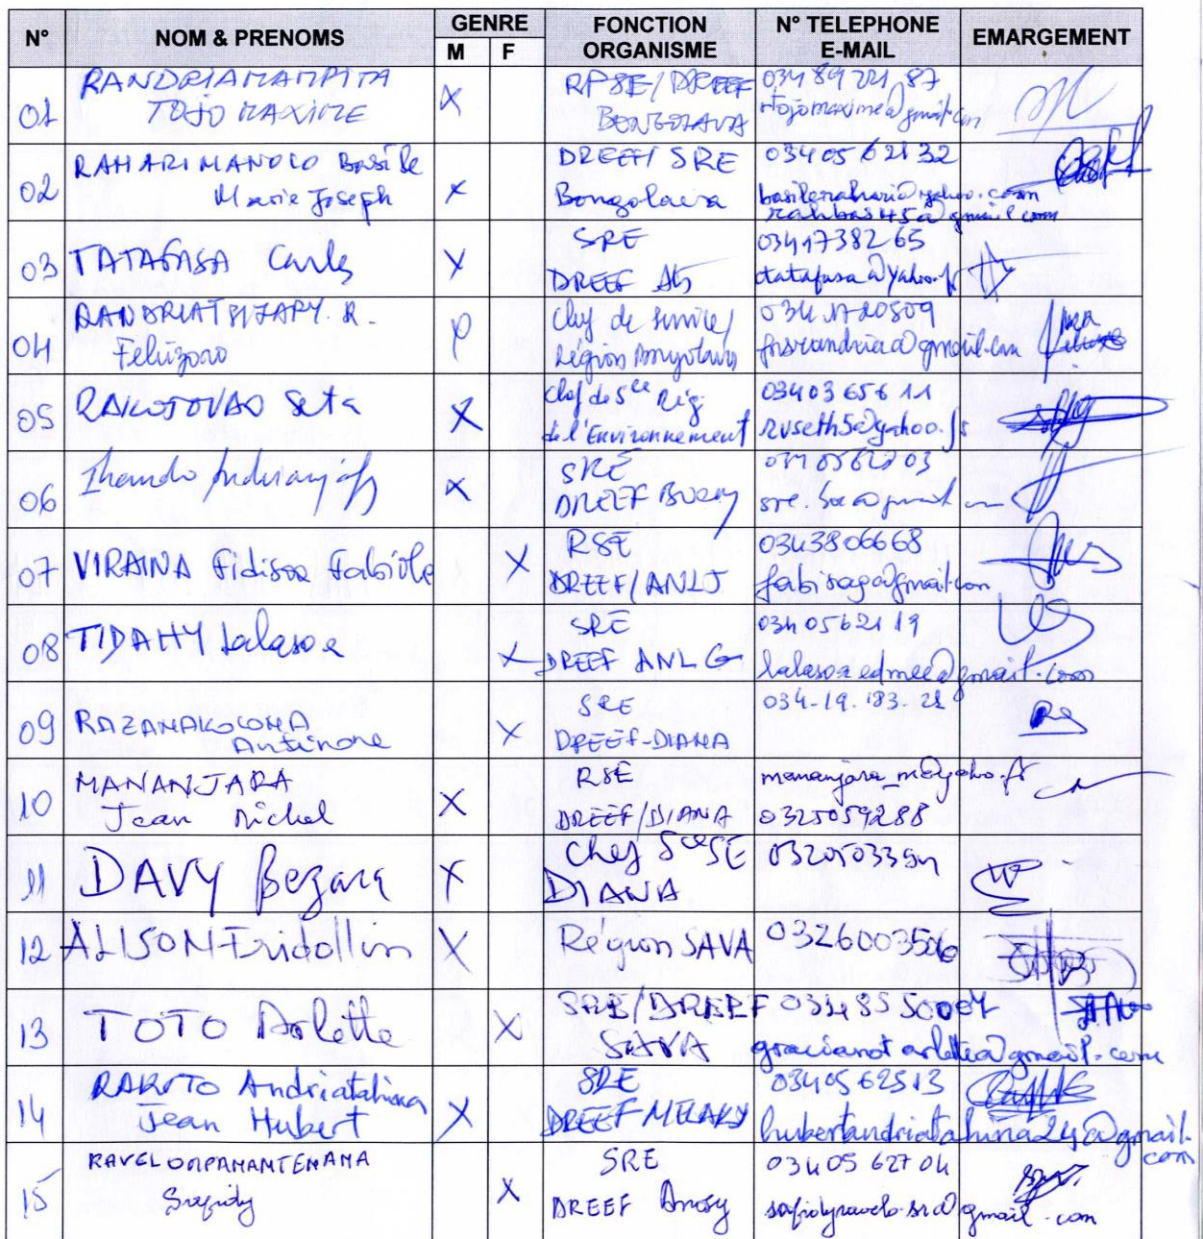 N° NOM & PRENOMS GENRE FONCTION ORGANISME N° TELEPHONE E-MAIL EMARGEMENT
M F
01 RANDRIAMAMPITA TOJO MAXIME X RPSE/DREEF BONGOLAVA 034 89 221 87 rtojomaxime@gmail.com
02 RAHARIMANOLO Basile Marie Joseph X DREEF/ SRE Bongolava 034 05 621 32 basilerahari@yahoo.com rahbas45@gmail.com
03 TATAFASA Carlos X SRE DREEF 03417382 65 ctatafasa@yahoo.fr
04 R. Felizoro Chef de service/ Région Bongolava 034 17 20509
05 RAKOTOVAO Seta X Chef de Sce Rég de l'Environnement 03403 656 11 rvseth5@yahoo.fr
06 X SRE DREEF
07 VIRAINA Fidisoa Fabiole X RSE DREEF/ANLJ 0343806668 fabisaga@gmail.com
08 TIDAHY Lalasoa X SRE DREEF ANLG 034 0562119 lalasoaedmee@gmail.com
09 RAZANAKOLONA Antinore X SRE DREEF-DIANA 034-19.183.28
10 MANANJARA Jean Michel X RSE DREEF/DIANA mananjara_m@yaho.fr 0325059288
11 DAVY Bezara X Chef Sce SE DIANA
12 ALISON Fridollin X Région SAVA 0326003506
13 TOTO Arlette X SRE/DREEF SAVA 034 85 50004 gracianotarlette@gmail.com
14 RAKOTO Andriatahina Jean Hubert X SRE DREEF MELAKY 03405 62513 hubertandriatahina24@gmail.com
15 Safidy X SRE DREEF Anosy 034 05 627 04 safidyravelo.sre@gmail.com